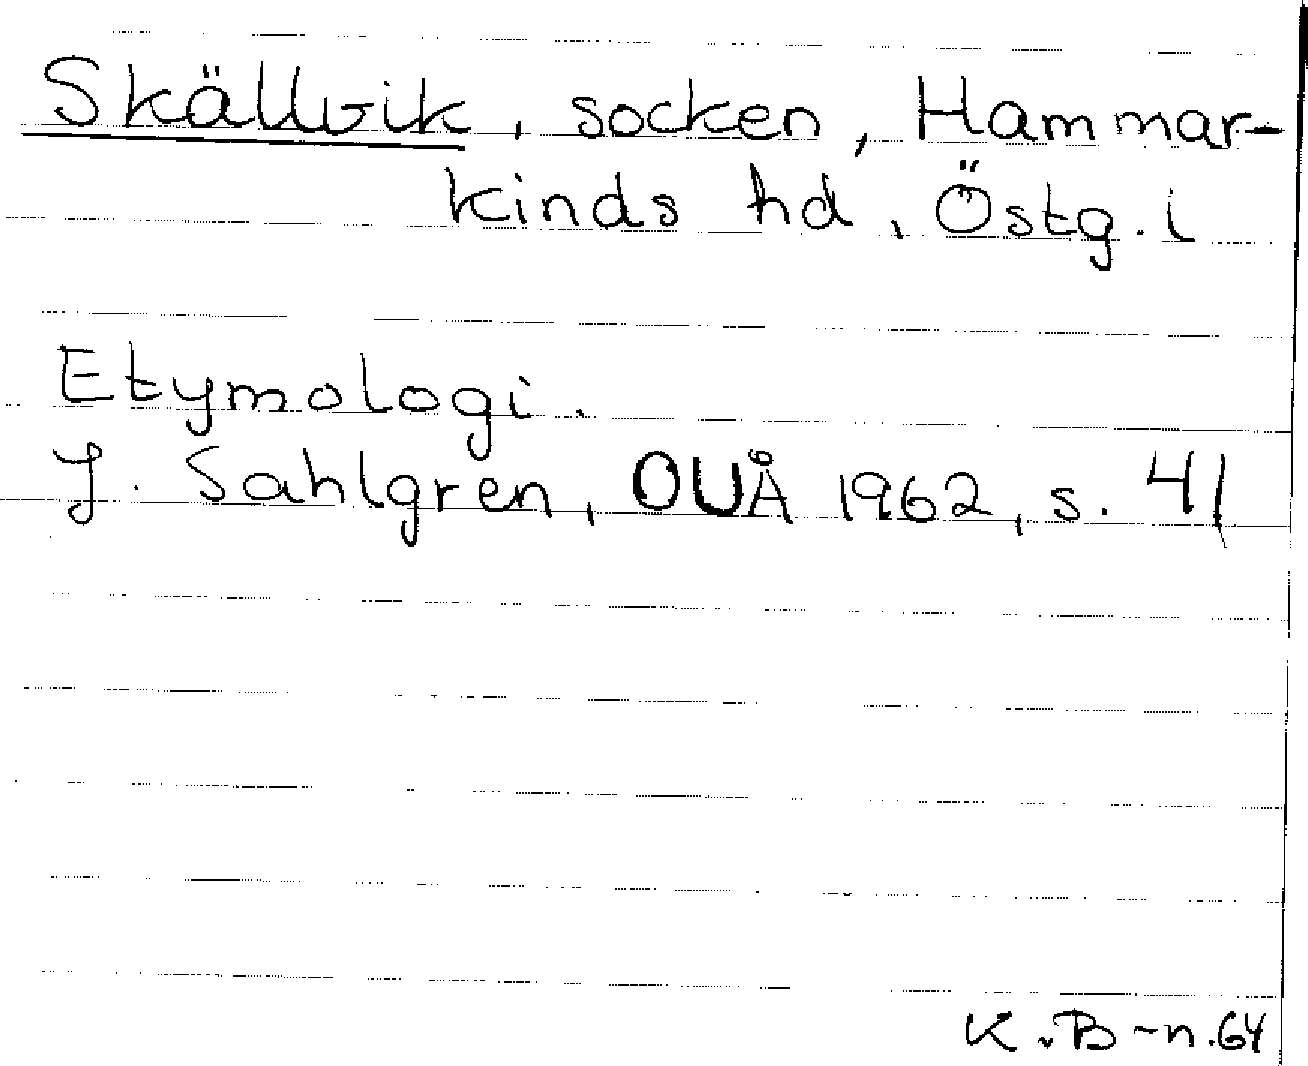 Skällvik, socken, Hammar-
kinds hd, Östg.i
Etymologi.
J. Sahlgren, OUÅ 1962, s. 41
K.B-n.64